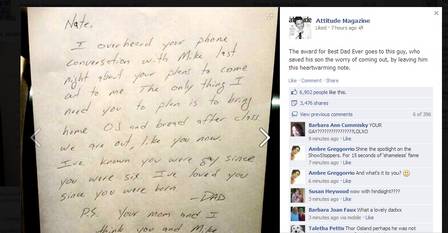 Nate,
I overheard your phone
conversation with Mike last
night about your plans to come
out to me. The only thing I
need you to plan is to bring
home OJ and bread after class.
We are out, like you now.
I've known you were gay since
you were six. I've loved you
since you were born.
—DAD
P.S. Your mom and I
think you and Mike
Attitude Magazine
Liked · 7 hours ago
The award for Best Dad Ever goes to this guy, who
saved his son the worry of coming out, by leaving him
this heartwarming note.
Like · Comment · Share
6,902 people like this.
3,476 shares
View previous comments
Barbara Ann Cummisky YOUR
9 minutes ago · Like
Ambre Greggorrio Shine the spotlight on the
ShowStoppers. For 15 seconds of 'shameless' fame
7 minutes ago · Like
Ambre Greggorrio And what's it to you?
6 minutes ago · Like
Susan Heywood wow with hindsight????
3 minutes ago · Like
Barbara Joan Faux What a lovely dadxx
3 minutes ago via mobile · Like
Taletha Pettis Thor Osland perhaps he was not